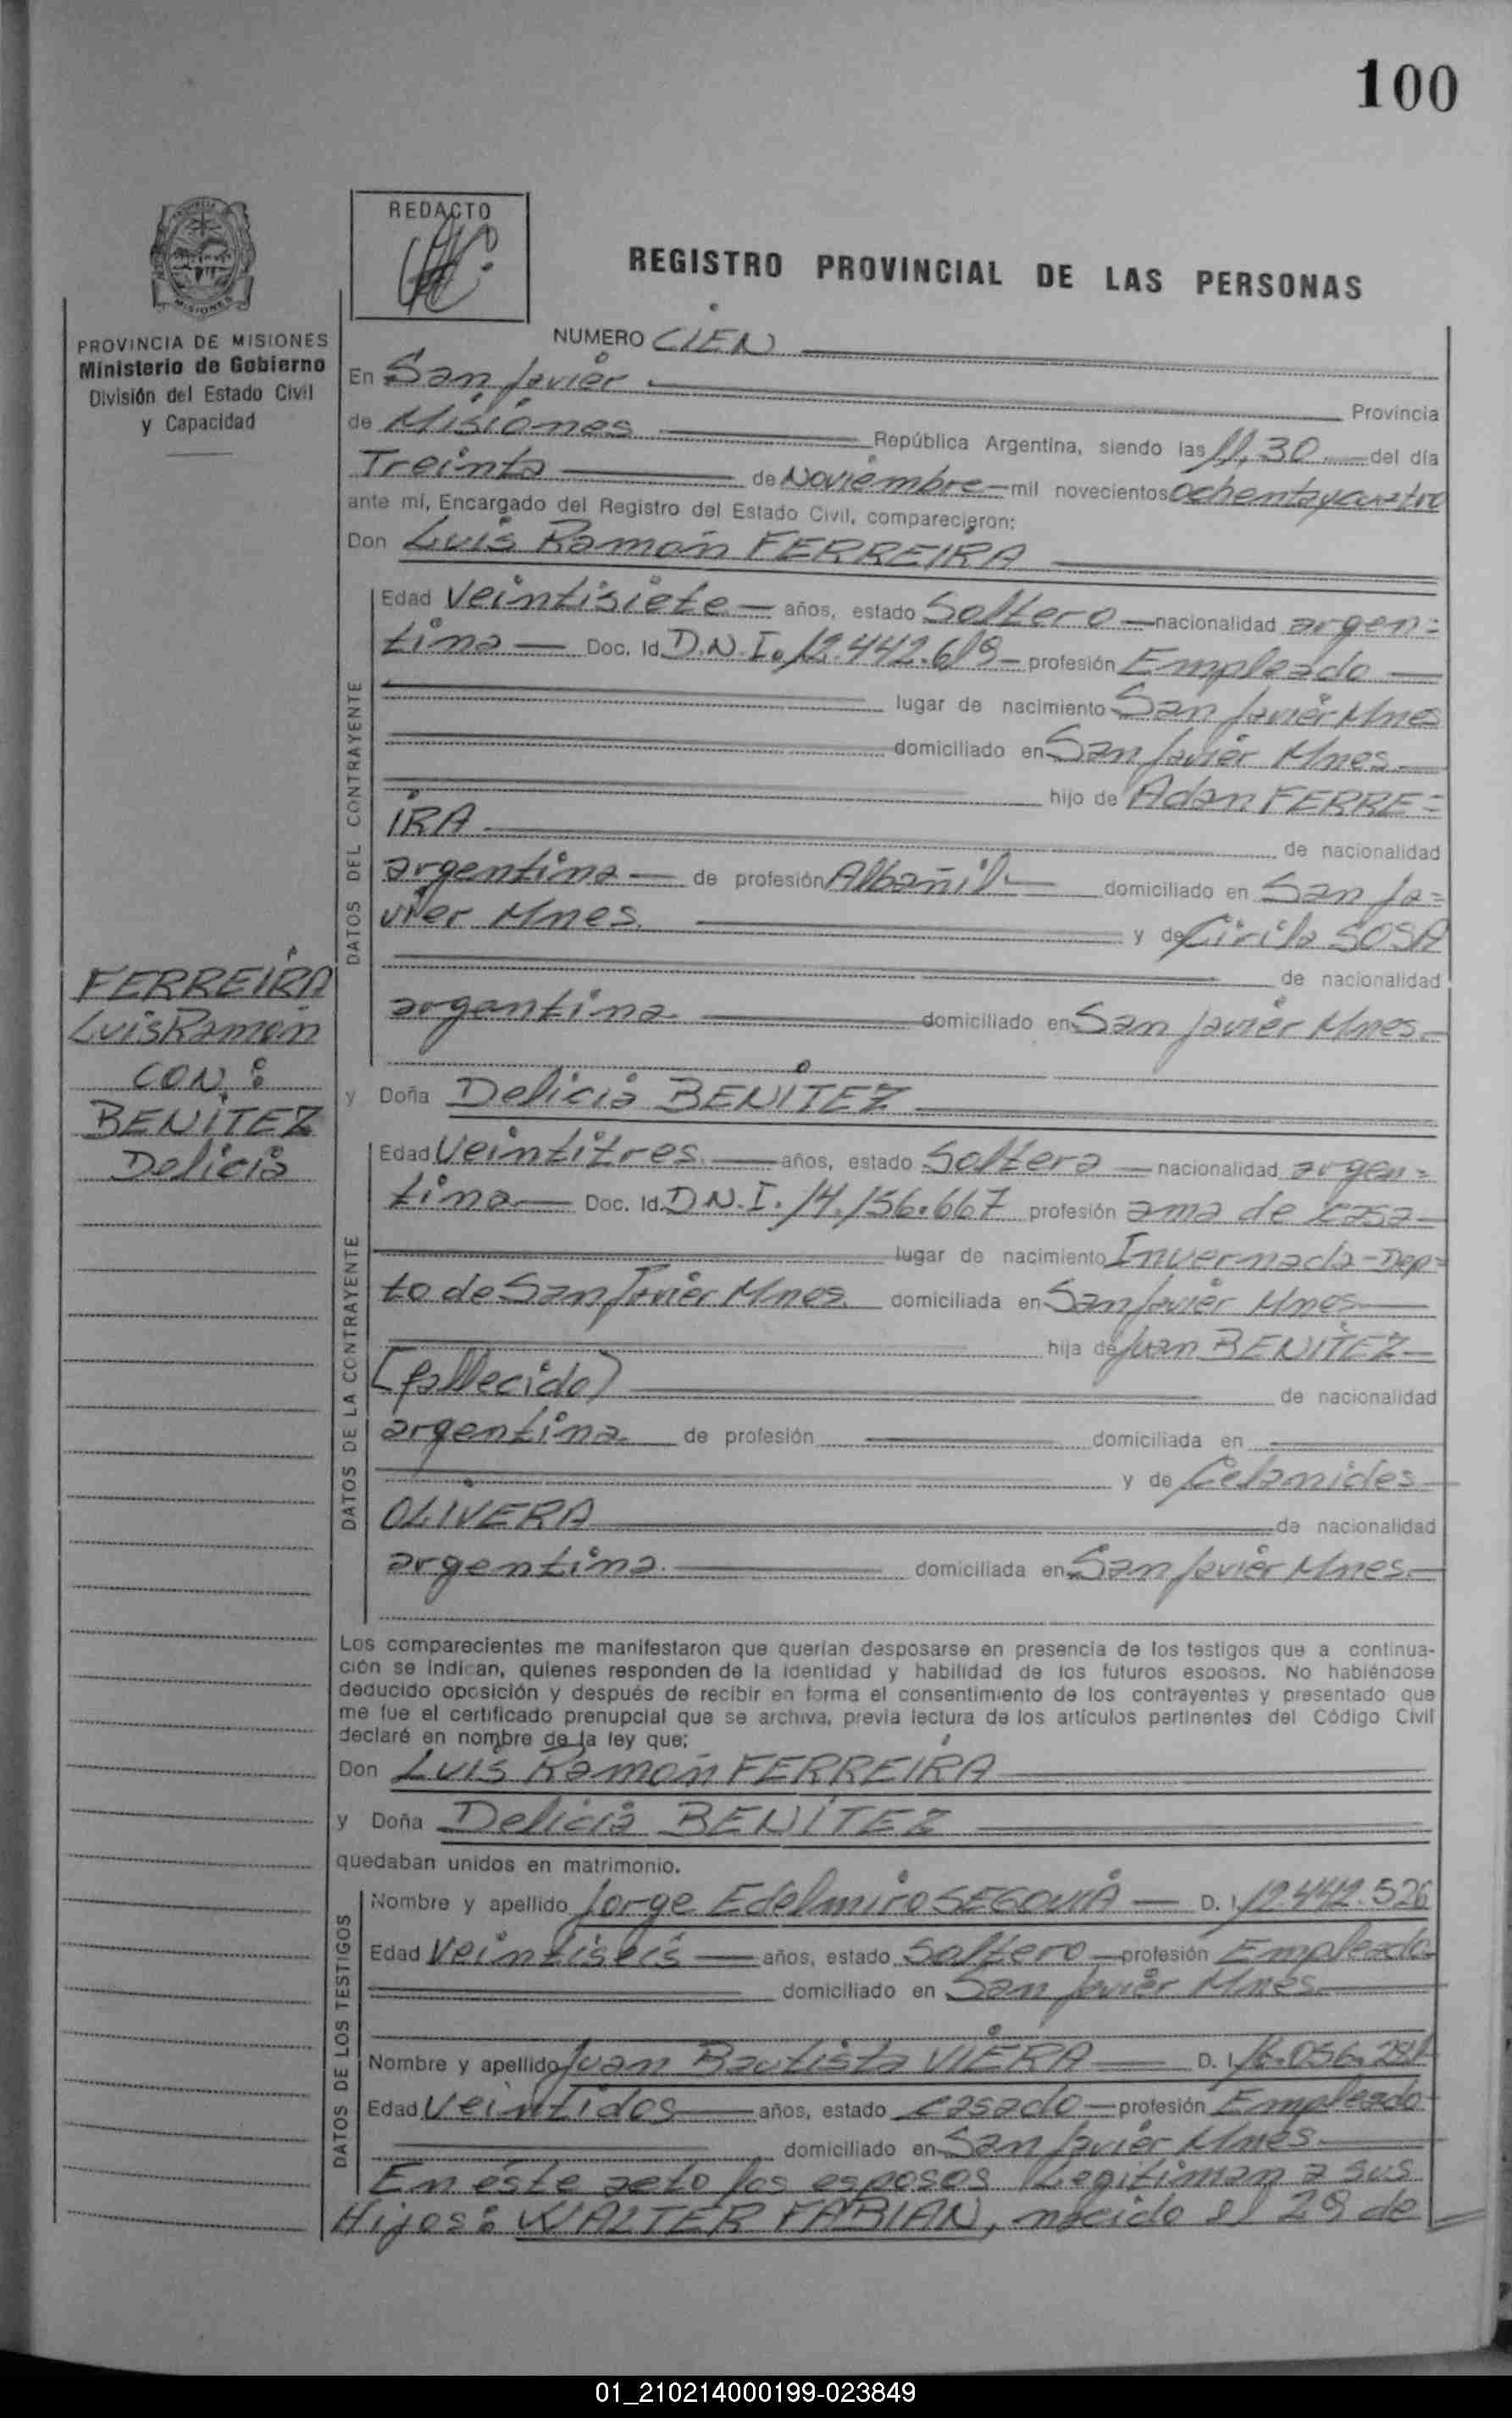 100
REDACTO
REGISTRO PROVINCIAL DE LAS PERSONAS
MISIONES
PROVINCIA DE MISIONES
Ministerio de Gobierno
División del Estado Civil
y Capacidad
NUMERO CIEN
En San Javier Provincia
de Misiones República Argentina, siendo las 11,30 del día
Treinta de Noviembre mil novecientos ochentaycuatro
ante mí, Encargado del Registro del Estado Civil, comparecieron:
Don Luis Ramón FERREIRA
DATOS DEL CONTRAYENTE
Edad Veintisiete años, estado Soltero nacionalidad argen=
tina Doc. Id. D.N.I. 12.442.619 profesión Empleado
lugar de nacimiento San Javier Mnes
domiciliado en San Javier Mnes.
hijo de Adan FERRE=
IRA de nacionalidad
argentina de profesión Albañil domiciliado en San Ja=
vier Mnes. y de Cirila SOSA
de nacionalidad
argentina domiciliado en San Javier Mnes.
FERREIRA
Luis Ramón
CON:
BENITEZ
Delicia
y Doña Delicia BENITEZ
DATOS DE LA CONTRAYENTE
Edad Veintitres años, estado Soltera nacionalidad argen=
tina Doc. Id. D.N.I. 14.156.667 profesión ama de casa
lugar de nacimiento Invernada-Dep=
to de San Javier Mnes. domiciliada en San Javier Mnes
hija de Juan BENITEZ
(fallecido) de nacionalidad
argentina de profesión domiciliada en
y de Celanides
OLIVERA de nacionalidad
argentina. domiciliada en San Javier Mnes.
Los comparecientes me manifestaron que querían desposarse en presencia de los testigos que a continua-
ción se indican, quienes responden de la identidad y habilidad de los futuros esposos. No habiéndose
deducido oposición y después de recibir en forma el consentimiento de los contrayentes y presentado que
me fue el certificado prenupcial que se archiva, previa lectura de los artículos pertinentes del Código Civil
declaré en nombre de la ley que;
Don Luis Ramón FERREIRA
y Doña Delicia BENITEZ
quedaban unidos en matrimonio.
DATOS DE LOS TESTIGOS
Nombre y apellido Jorge Edelmiro SEGOVIA D. I. 12.442.526
Edad Veintiseis años, estado Soltero profesión Empleado
domiciliado en San Javier Mnes.
Nombre y apellido Juan Bautista VIERA D. I.
Edad Veintidos años, estado casado profesión Empleado
domiciliado en San Javier Mnes.
En éste acto los esposos Legitiman a sus
Hijos: WALTER FABIAN, nacido el 29 de
01_210214000199-023849